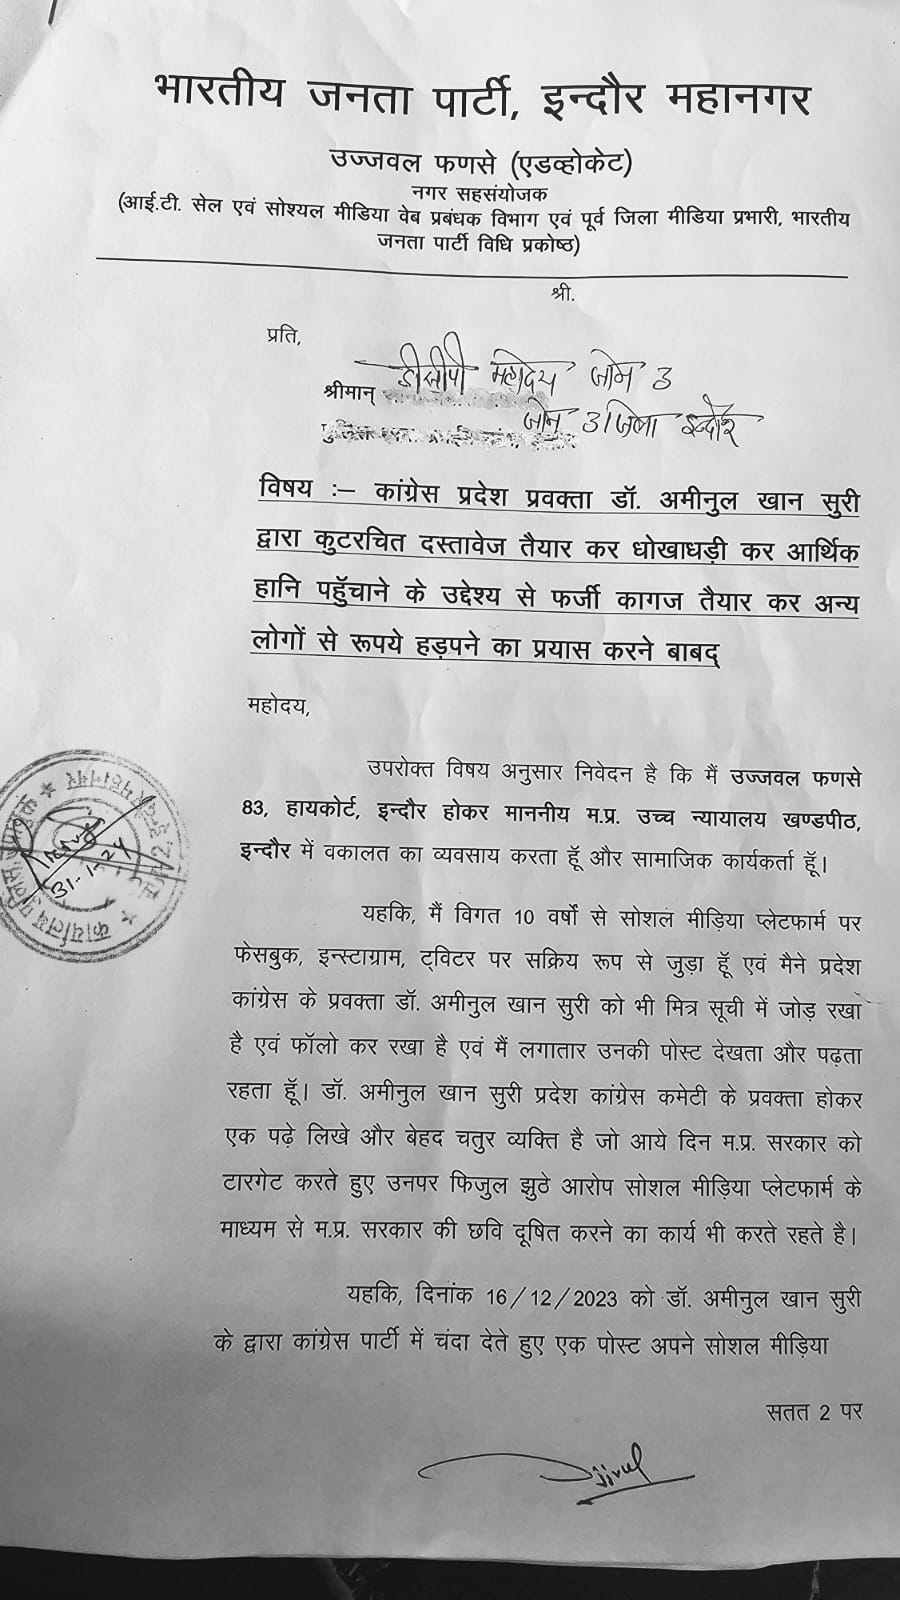 भारतीय जनता पार्टी, इन्दौर महानगर
उज्जवल फणसे (एडव्होकेट)
नगर सहसंयोजक
(आई.टी. सेल एवं सोश्यल मीडिया वेब प्रबंधक विभाग एवं पूर्व जिला मीडिया प्रभारी, भारतीय
जनता पार्टी विधि प्रकोष्ठ)
श्री.
प्रति,
डीसीपी महोदय जोन 3
श्रीमान्
जोन 3 जिला इन्दौर
विषय :– कांग्रेस प्रदेश प्रवक्ता डॉ. अमीनुल खान सुरी
द्वारा कुटरचित दस्तावेज तैयार कर धोखाधड़ी कर आर्थिक
हानि पहुँचाने के उद्देश्य से फर्जी कागज तैयार कर अन्य
लोगों से रूपये हड़पने का प्रयास करने बाबद्
महोदय,
उपरोक्त विषय अनुसार निवेदन है कि मैं उज्जवल फणसे
83, हायकोर्ट, इन्दौर होकर माननीय म.प्र. उच्च न्यायालय खण्डपीठ,
इन्दौर में वकालत का व्यवसाय करता हूँ और सामाजिक कार्यकर्ता हूँ।
यहकि, मैं विगत 10 वर्षो से सोशल मीड़िया प्लेटफार्म पर
फेसबुक, इन्स्टाग्राम, ट्विटर पर सक्रिय रूप से जुड़ा हूँ एवं मैने प्रदेश
कांग्रेस के प्रवक्ता डॉ. अमीनुल खान सुरी को भी मित्र सूची में जोड़ रखा
है एवं फॉलो कर रखा है एवं मैं लगातार उनकी पोस्ट देखता और पढ़ता
रहता हूँ। डॉ. अमीनुल खान सुरी प्रदेश कांग्रेस कमेटी के प्रवक्ता होकर
एक पढ़े लिखे और बेहद चतुर व्यक्ति है जो आये दिन म.प्र. सरकार को
टारगेट करते हुए उनपर फिजुल झुठे आरोप सोशल मीड़िया प्लेटफार्म के
माध्यम से म.प्र. सरकार की छवि दूषित करने का कार्य भी करते रहते है।
यहकि, दिनांक 16/12/2023 को डॉ. अमीनुल खान सुरी
के द्वारा कांग्रेस पार्टी में चंदा देते हुए एक पोस्ट अपने सोशल मीड़िया
सतत 2 पर
कार्यालय पुलिस
31-1-24